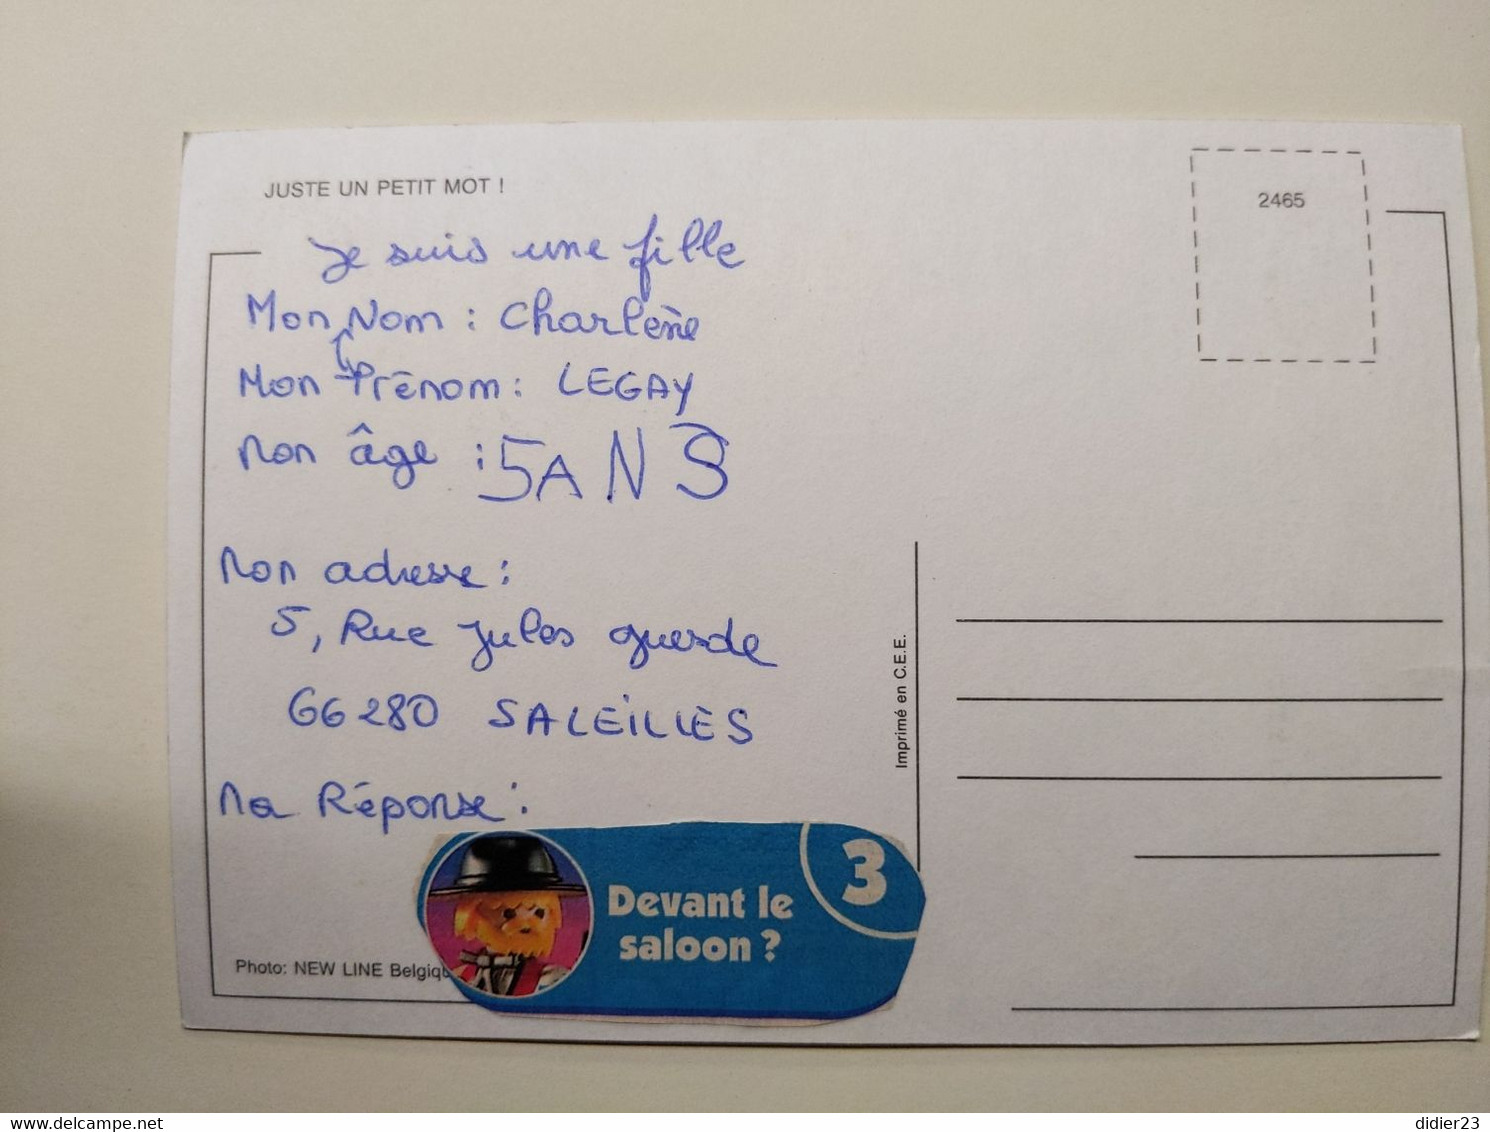 JUSTE UN PETIT MOT !
2465
Je suis une fille
Mon Nom : Charlène
Mon Prénom : LEGAY
Mon âge : 5 ANS
Mon adresse :
5, Rue Jules guesde
66280 SALEILLES
Ma Réponse :
Devant le
saloon ?
3
Photo: NEW LINE Belgiqu
Imprimé en C.E.E.
delcampe.net
didier23